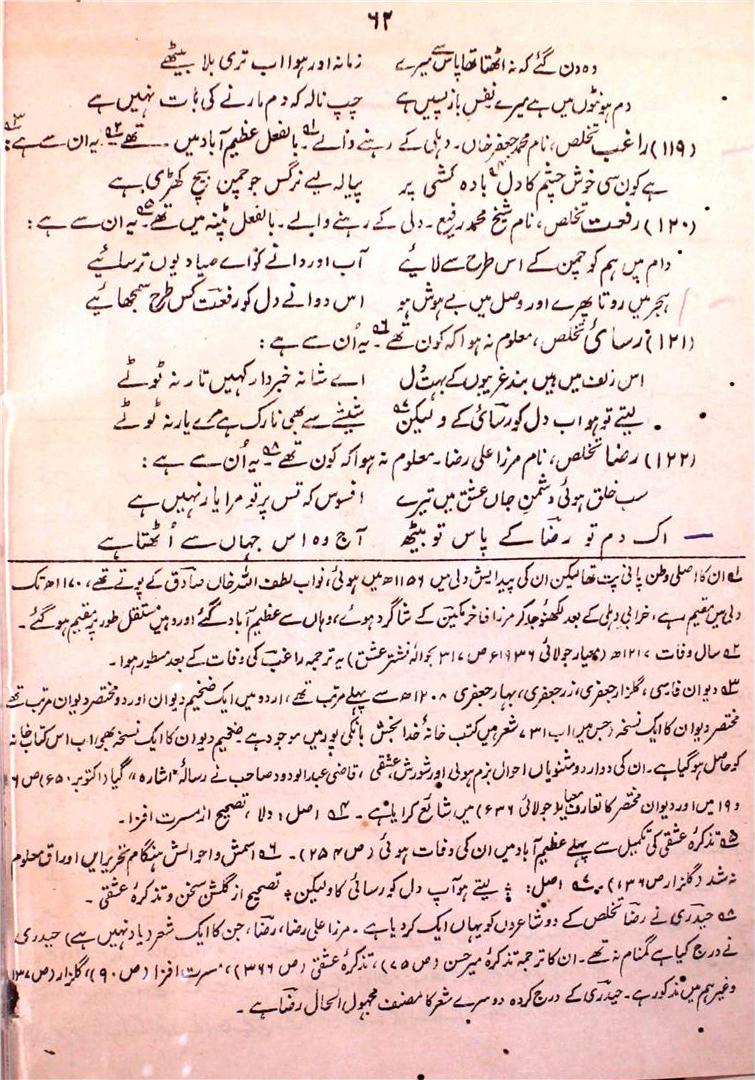 ۶۲
وہ دن گئے کہ نہ اٹھتا تھا پاس سے میرے زمانہ اور ہوا اب تری بلا بیٹھے
دم ہونٹوں میں ہے میرے نفسِ بازپسیں ہے چپ نالہ کہ دم مارنے کی بات نہیں ہے
(۱۱۹) راغب تخلص، نام محمد جعفر خاں۔ دہلی کے رہنے والے۔ ۱؎ بالفعل عظیم آباد میں تھے ۲؎۔ یہ ان سے ہے ۳؎:
ہے کون سی خوش چشم کا دل ۴؎ بادہ کشی پر پیالہ لیے نرگس جو چمن بیچ کھڑی ہے
(۱۲۰) رفعت تخلص، نام شیخ محمد رفیع۔ دلی کے رہنے والے۔ بالفعل پٹنہ میں تھے ۵؎۔ یہ ان سے ہے:
دام میں ہم کو چمن کے اس طرح سے لائیے آب اور دانے کو اے صیاد یوں ترسائیے
ہجر میں روتا پھرے اور وصل میں بے ہوش ہو اس دوانے دل کو رفعت کس طرح سمجھائیے
(۱۲۱) رسائی تخلص، معلوم نہ ہوا کہ کون تھے ۶؎۔ یہ اُن سے ہے:
اس زلف میں ہیں بند غریبوں کے بہت دل اے شانہ خبردار کہیں تار نہ ٹوٹے
لیتے تو ہو اب دل کو رسائی کے ولیکن ۷؎ شیشے سے بھی نازک ہے مرے یار نہ ٹوٹے
(۱۲۲) رضا تخلص، نام مرزا علی رضا۔ معلوم نہ ہوا کہ کون تھے ۸؎۔ یہ اُن سے ہے:
سب خلق ہوئی دشمنِ جاں عشق میں تیرے افسوس کہ تس پر تو مرا یار نہیں ہے
اک دم تو رضا کے پاس تو بیٹھ آج وہ اس جہاں سے اُٹھتا ہے
۱؎ ان کا اصلی وطن پانی پت تھا لیکن ان کی پیدایش دلی میں ۱۱۵۶ھ میں ہوئی، نواب لطف اللہ خاں صادق کے پوتے تھے، ۱۱۷۰ھ تک
دلی میں مقیم رہے، خرابیِ دہلی کے بعد لکھنؤ جا کر مرزا فاخر مکین کے شاگرد ہوئے، وہاں سے عظیم آباد گئے اور وہیں مستقل طور پر مقیم ہو گئے۔
۲؎ سال وفات ۱۲۱۷ھ (معیار جولائی ۱۹۳۶ء ص ۳۱۷ بحوالہ نشتر عشق) یہ ترجمہ راغب کی وفات کے بعد مسطور ہوا۔
۳؎ دیوان فارسی، گلزار جعفری، زر جعفری، بہار جعفری ۱۲۰۸ھ سے پہلے مرتب تھے، اردو میں ایک ضخیم دیوان اور دو مختصر دیوان مرتب تھے
مختصر دیوان کا ایک نسخہ (جس میں اب ۷۳۱ شعر ہیں کتب خانۂ خدا بخش بانکی پور میں موجود ہے۔ ضخیم دیوان کا ایک نسخہ بھی اب اس کتاب خانہ
کو حاصل ہو گیا ہے۔ ان کی دو اردو مثنویاں احوال بزم ہولی اور شورش عشقی، قاضی عبدالودود صاحب نے رسالہ "اشارہ" گیا (اکتوبر ۶۵۰) ص ۶
و ۱۹ میں اور دیوان مختصر کا تعارف معیار (جولائی ۶۳۶) میں شائع کرایا ہے۔ ۴؎ اصل: دلا، تصحیح از مسرت افزا۔
۵؎ تذکرۂ عشقی کی تکمیل سے پہلے عظیم آباد میں ان کی وفات ہوئی (ص ۲۵۴)۔ ۶؎ اسمش و احوالش ہنگام تحریر ایں اوراق معلوم
نہ شد (گلزار ص ۱۳۶)۔ ۷؎ اصل: لیتے ہو آپ دل کو رسائی کا ولیکن؛ تصحیح از گلشن سخن و تذکرۂ عشقی۔
۸؎ حیدری نے رضا تخلص کے دو شاعروں کو یہاں ایک کر دیا ہے۔ مرزا علی رضا، رضا، جن کا ایک شعر (یاد نہیں ہے) حیدری
نے درج کیا ہے گمنام نہ تھے۔ ان کا ترجمہ تذکرۂ میر حسن (ص ۷۵)، تذکرۂ عشقی (ص ۳۶۶)، مسرت افزا (ص ۹۰)، گلزار (ص ۱۳۷
وغیرہم میں مذکور ہے۔ حیدری کے درج کردہ دوسرے شعر کا مصنف مجہول الحال رضا ہے۔